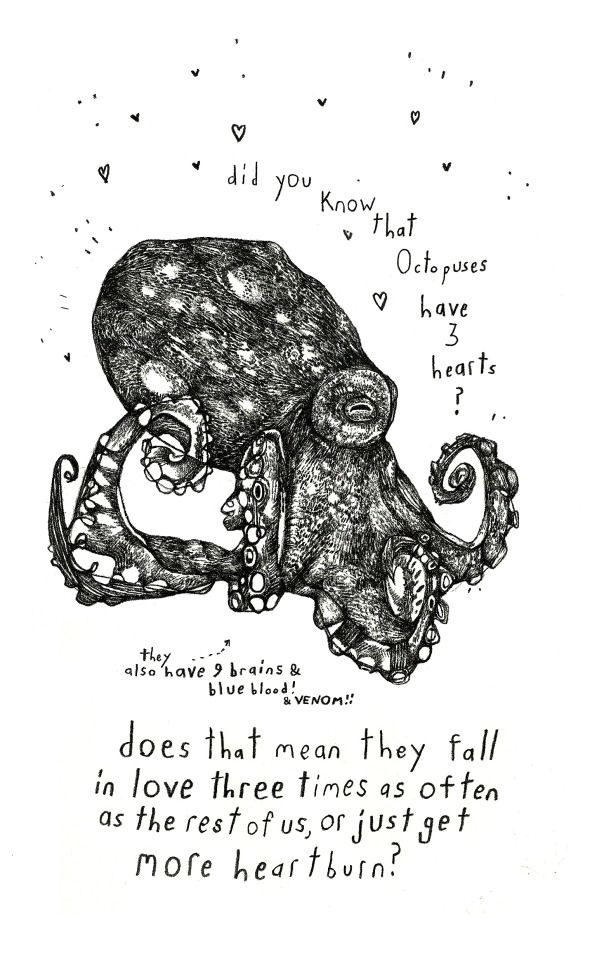 did you
Know
that
Octopuses
have
3
hearts
?
they
also have 9 brains &
blue blood!
& VENOM!!
does that mean they fall
in love three times as often
as the rest of us, or just get
more heartburn?